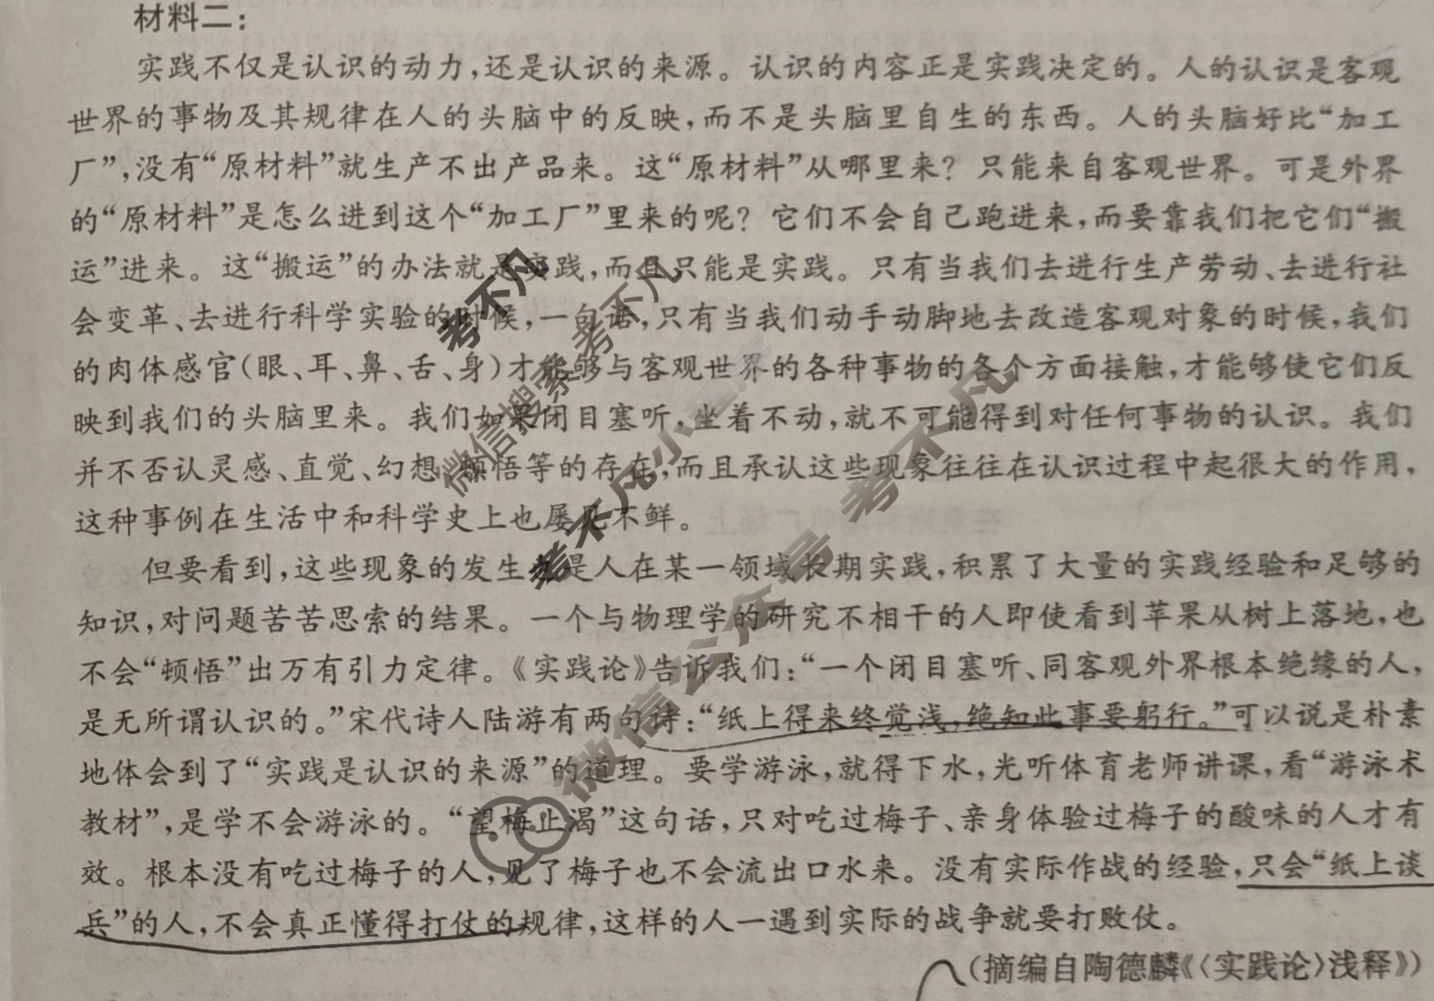 材料二：
实践不仅是认识的动力，还是认识的来源。认识的内容正是实践决定的。人的认识是客观
世界的事物及其规律在人的头脑中的反映，而不是头脑里自生的东西。人的头脑好比“加工
厂”，没有“原材料”就生产不出产品来。这“原材料”从哪里来？只能来自客观世界。可是外界
的“原材料”是怎么进到这个“加工厂”里来的呢？它们不会自己跑进来，而要靠我们把它们“搬
运”进来。这“搬运”的办法就是实践，而且只能是实践。只有当我们去进行生产劳动、去进行社
会变革、去进行科学实验的时候，一句话，只有当我们动手动脚地去改造客观对象的时候，我们
的肉体感官（眼、耳、鼻、舌、身）才能够与客观世界的各种事物的各个方面接触，才能够使它们反
映到我们的头脑里来。我们如果闭目塞听，坐着不动，就不可能得到对任何事物的认识。我们
并不否认灵感、直觉、幻想、顿悟等的存在，而且承认这些现象往往在认识过程中起很大的作用，
这种事例在生活中和科学史上也屡见不鲜。
但要看到，这些现象的发生也是人在某一领域长期实践，积累了大量的实践经验和足够的
知识，对问题苦苦思索的结果。一个与物理学的研究不相干的人即使看到苹果从树上落地，也
不会“顿悟”出万有引力定律。《实践论》告诉我们：“一个闭目塞听、同客观外界根本绝缘的人，
是无所谓认识的。”宋代诗人陆游有两句诗：“纸上得来终觉浅，绝知此事要躬行。”可以说是朴素
地体会到了“实践是认识的来源”的道理。要学游泳，就得下水，光听体育老师讲课，看“游泳术
教材”，是学不会游泳的。“望梅止渴”这句话，只对吃过梅子、亲身体验过梅子的酸味的人才有
效。根本没有吃过梅子的人，见了梅子也不会流出口水来。没有实际作战的经验，只会“纸上谈
兵”的人，不会真正懂得打仗的规律，这样的人一遇到实际的战争就要打败仗。
（摘编自陶德麟《〈实践论〉浅释》）
考不凡
微信搜索 考不凡
考不凡小
微信公众号 考不凡